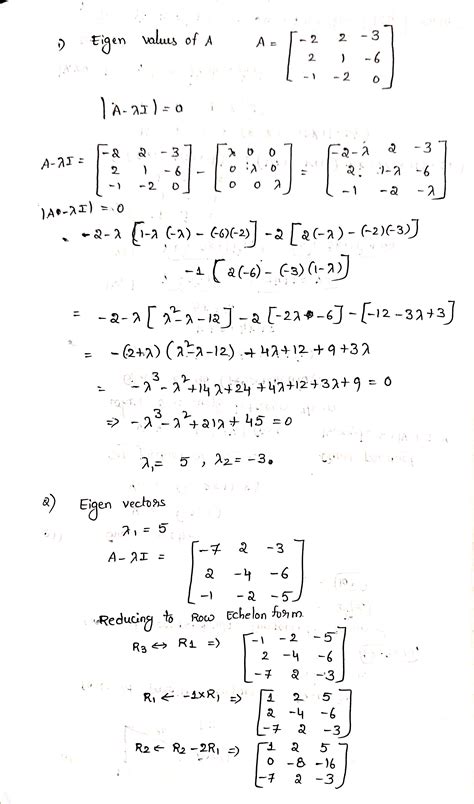 1) Eigen values of A A = [-2 2 -3; 2 1 -6; -1 -2 0]
|A-λI| = 0
A-λI = [-2 2 -3; 2 1 -6; -1 -2 0] - [λ 0 0; 0 λ 0; 0 0 λ] = [-2-λ 2 -3; 2 1-λ -6; -1 -2 -λ]
|A-λI| = 0
-2-λ [1-λ (-λ) - (-6)(-2)] - 2 [2(-λ) - (-2)(-3)]
-1 [2(-6) - (-3)(1-λ)]
= -2-λ [λ²-λ-12] - 2[-2λ-6] - [-12-3λ+3]
= -(2+λ) (λ²-λ-12) + 4λ+12 + 9+3λ
= -λ³-λ²+14λ+24+4λ+12+3λ+9 = 0
⇒ -λ³-λ²+21λ+45 = 0
λ₁= 5 , λ₂= -3.
2) Eigen vectors
λ₁ = 5
A-λI = [-7 2 -3; 2 -4 -6; -1 -2 -5]
Reducing to Row Echelon form
R3 ↔ R1 ⇒ [-1 -2 -5; 2 -4 -6; -7 2 -3]
R₁ ← -1×R₁ ⇒ [1 2 5; 2 -4 -6; -7 2 -3]
R2 ← R2-2R₁ ⇒ [1 2 5; 0 -8 -16; -7 2 -3]